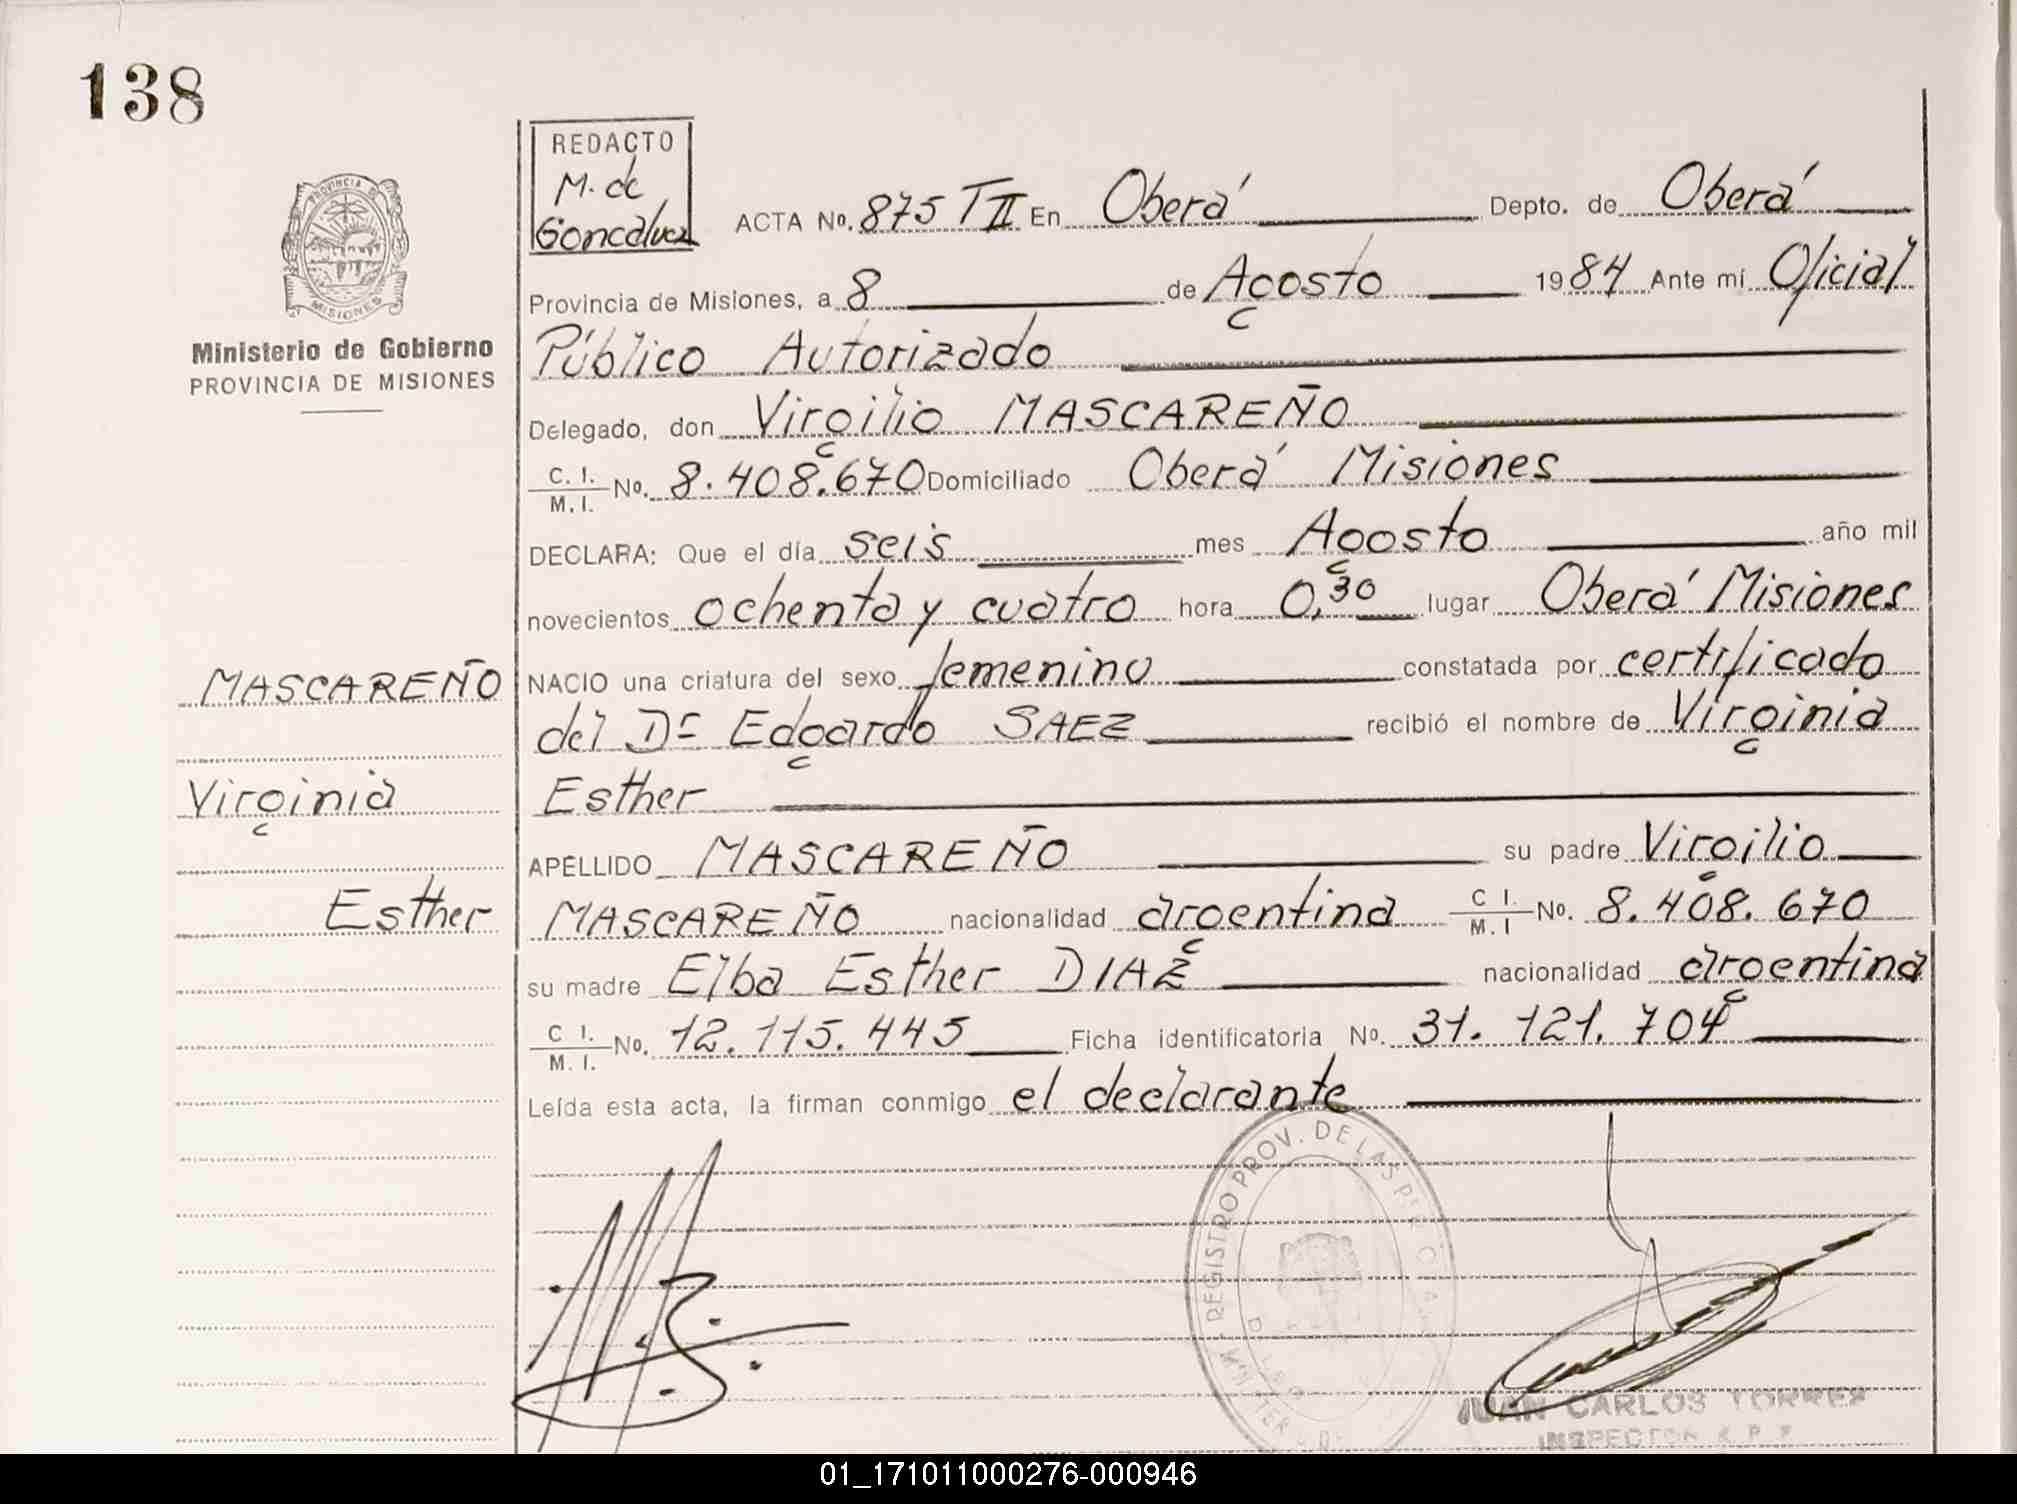 138
PROVINCIA DE
MISIONES
Ministerio de Gobierno
PROVINCIA DE MISIONES
REDACTO
M. de
Goncalvez
ACTA No. 875 T II En Oberá Depto. de Oberá
Provincia de Misiones, a 8 de Agosto 1984 Ante mí Oficial
Público Autorizado
Delegado, don Virgilio MASCAREÑO
C. I.
M. I. No. 8.408.670 Domiciliado Oberá Misiones
DECLARA: Que el día seis mes Agosto año mil
novecientos ochenta y cuatro hora 0,30 lugar Oberá Misiones
MASCAREÑO
NACIO una criatura del sexo femenino constatada por certificado
del Dr Edgardo SAEZ recibió el nombre de Virginia
Virginia
Esther
APELLIDO MASCAREÑO su padre Virgilio
Esther
MASCAREÑO nacionalidad argentina C I. M. I No. 8.408.670
su madre Elba Esther DIAZ nacionalidad argentina
C I.
M. I. No. 12.115.445 Ficha identificatoria No. 31.121.704
Leída esta acta, la firman conmigo el declarante
REGISTRO PROV. DE LAS PER
JUAN CARLOS TORRES
INSPECTOR R. P. P.
01_171011000276-000946